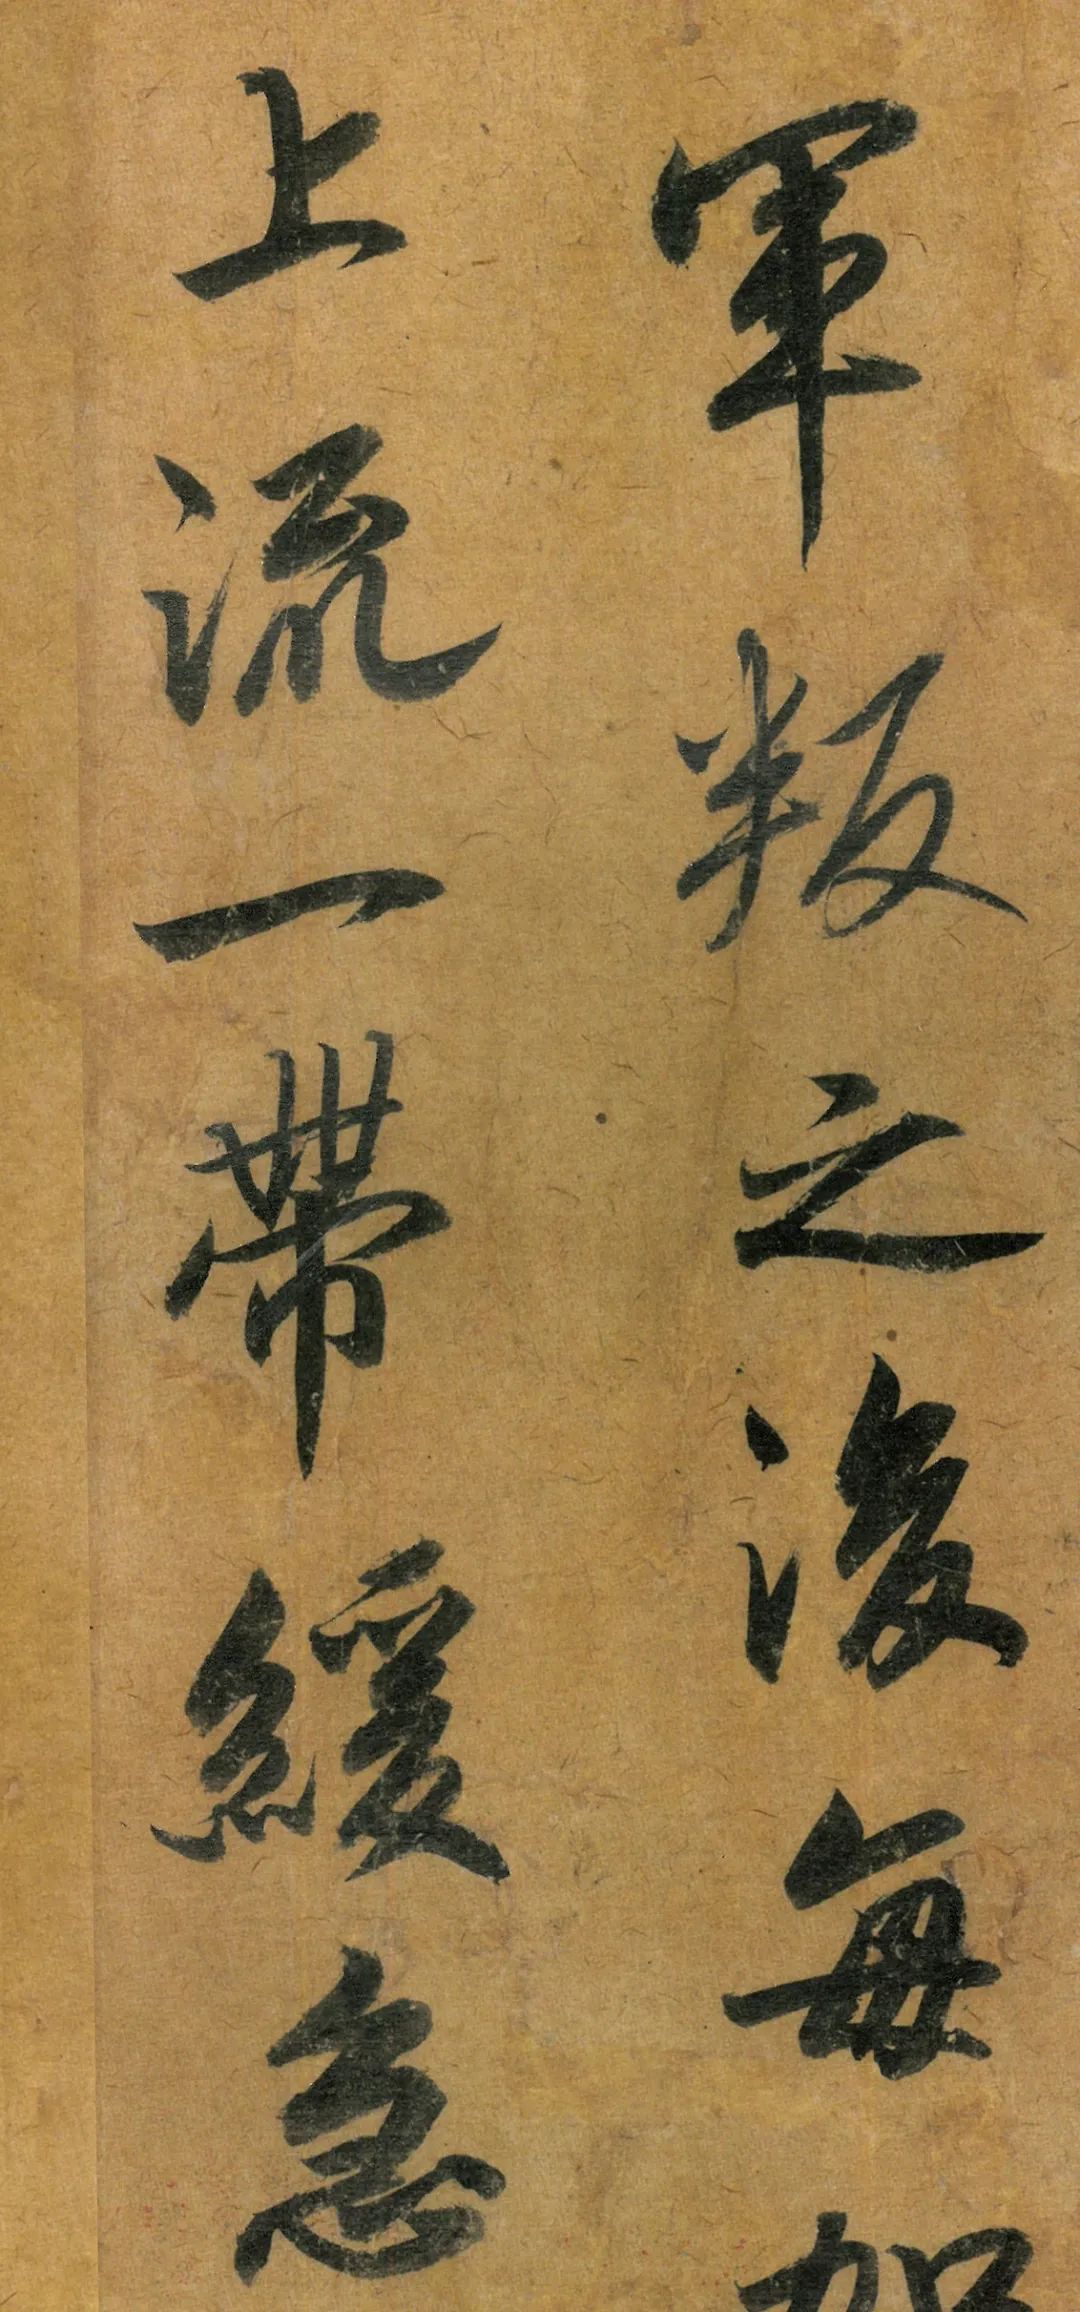 軍叛之後每加
上流一帶緩急